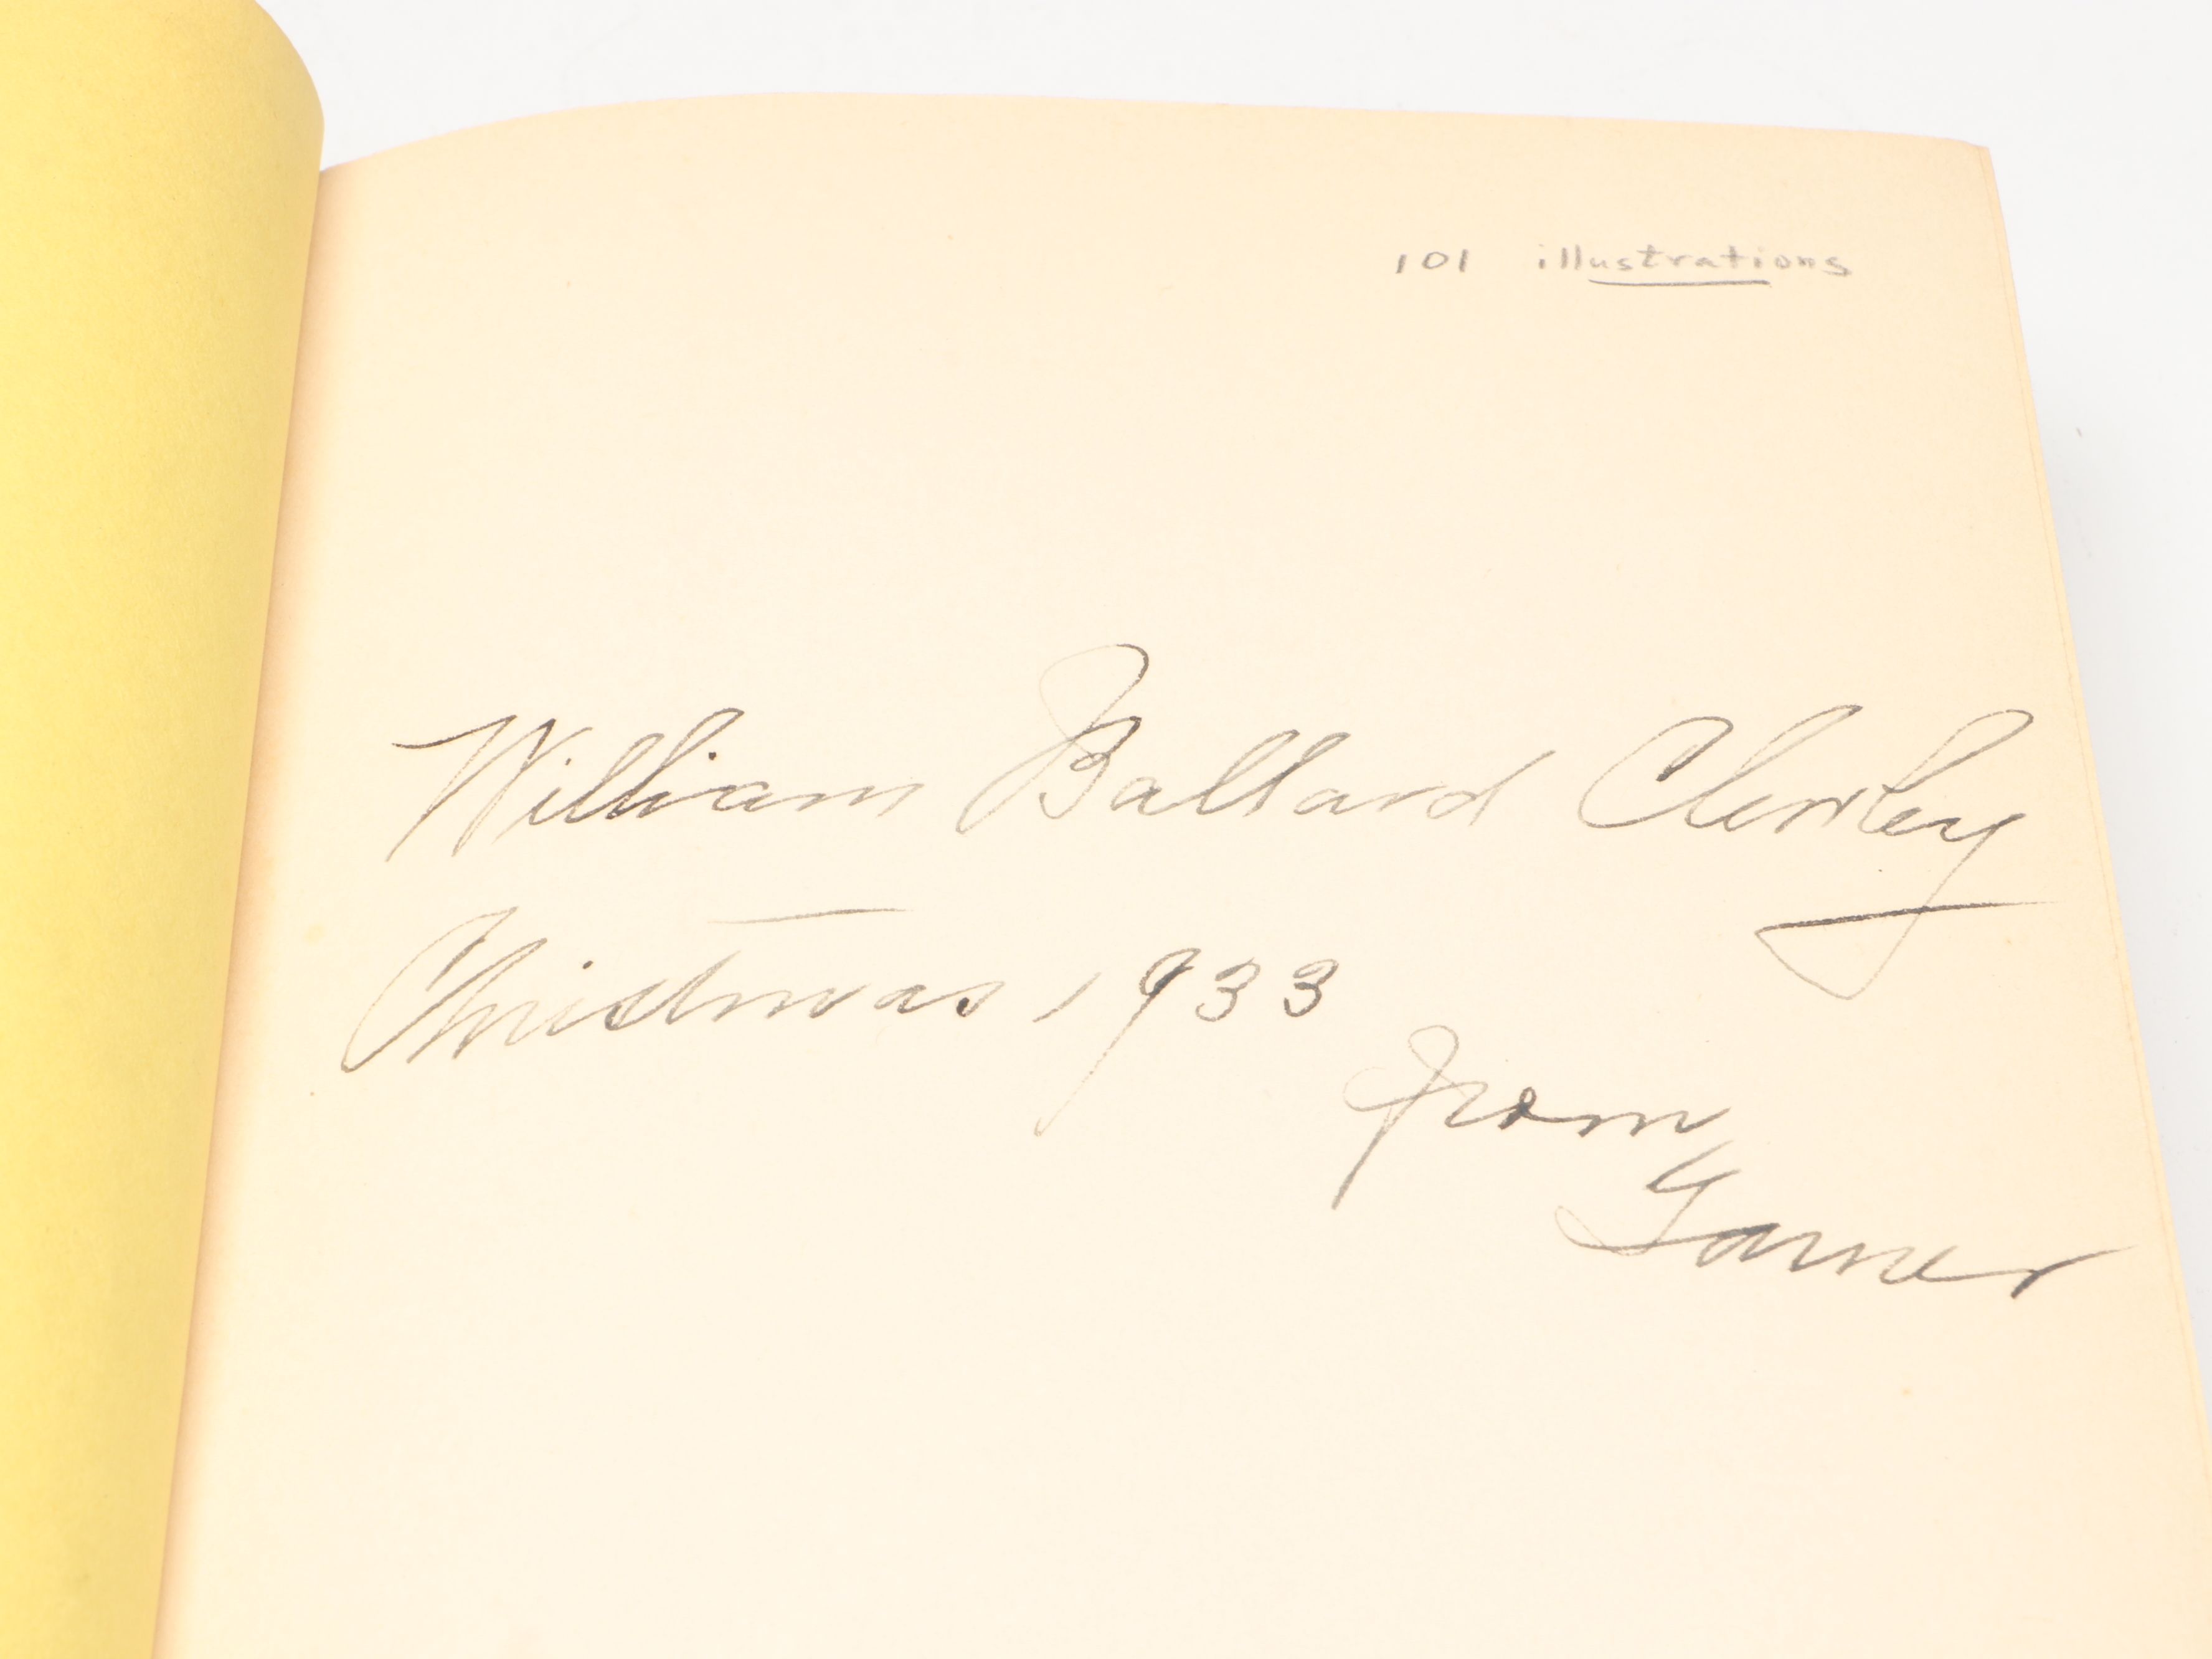 101 illustrations
William Ballard
Christmas 1933
from